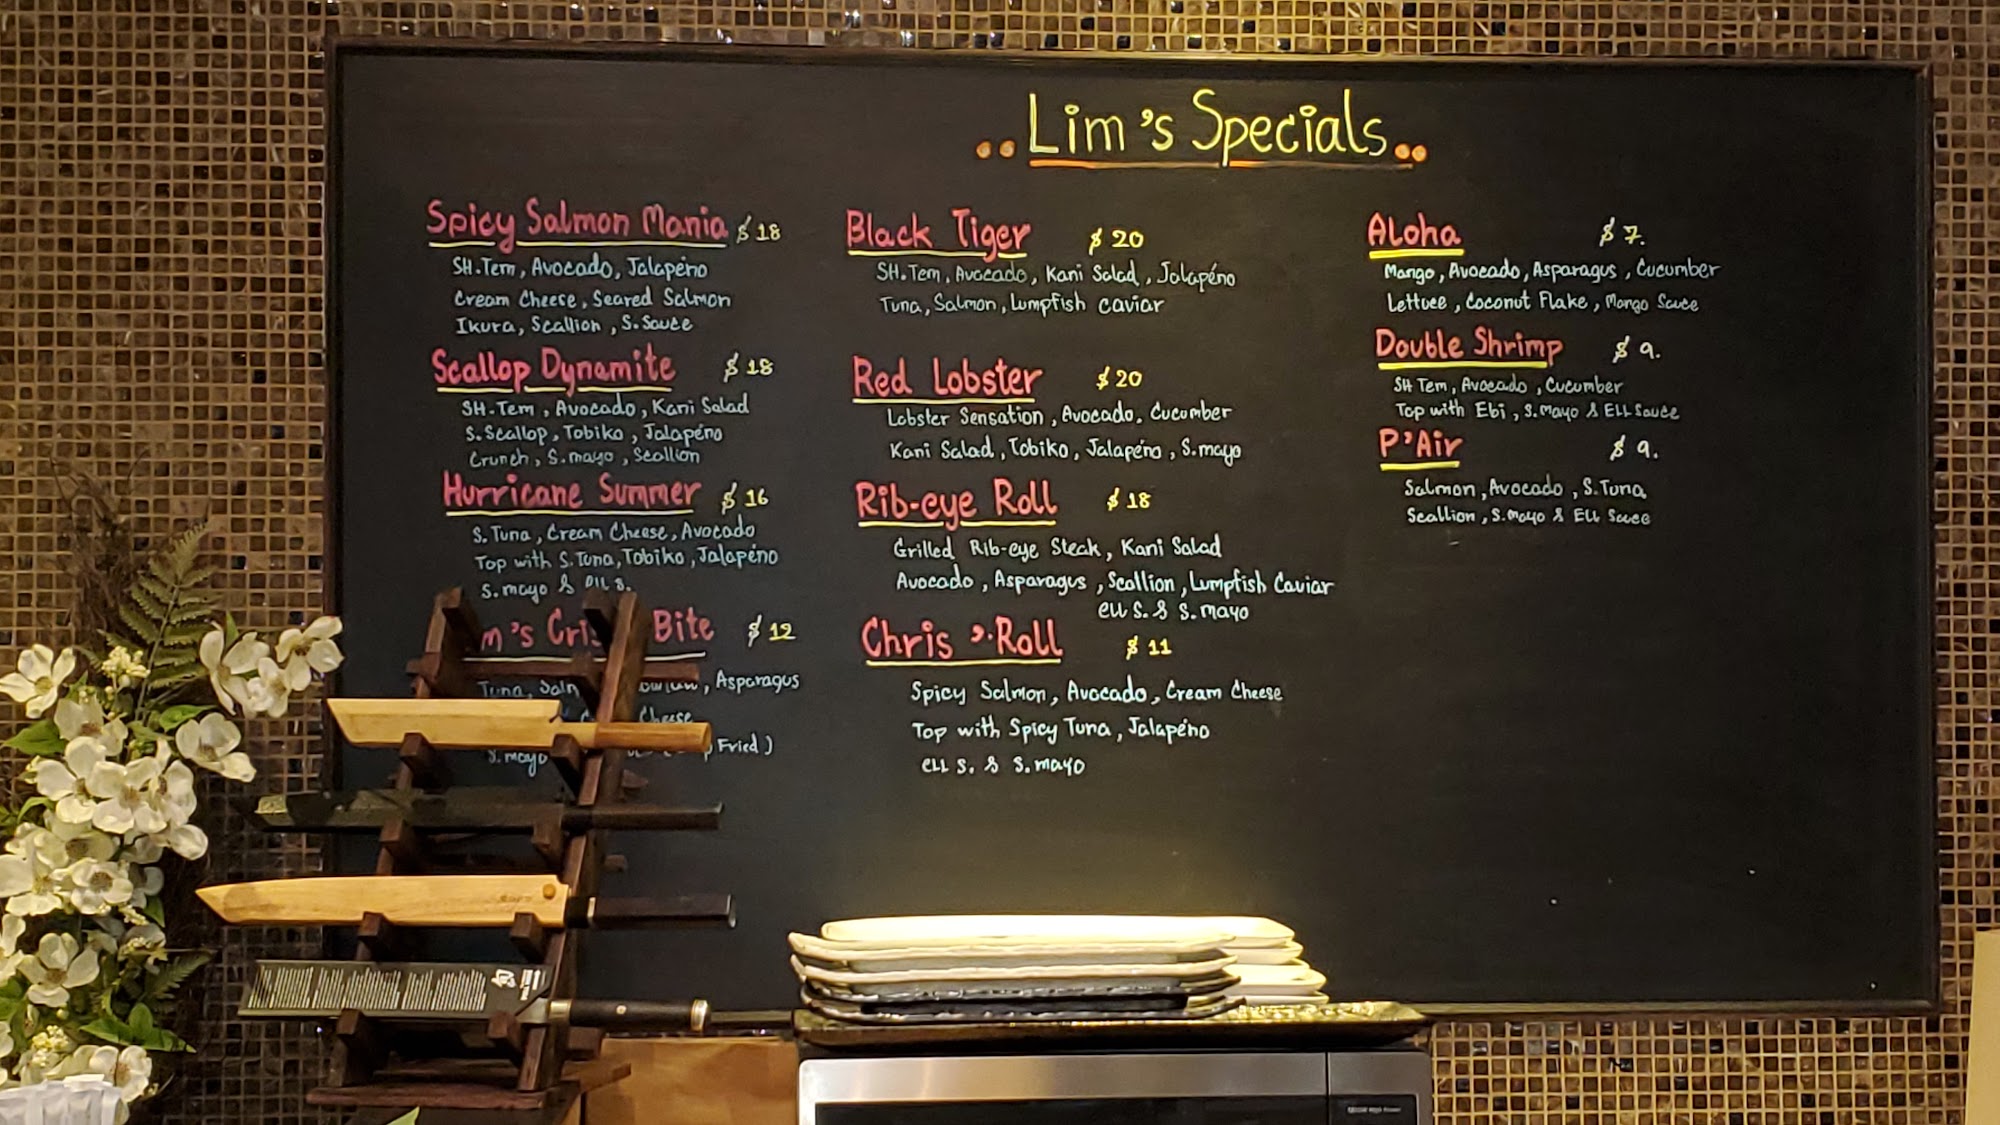 ..Lim's Specials..
Spicy Salmon Mania $18
SH.Tem, Avocado, Jalapéno
Cream Cheese, Seared Salmon
Ikura, Scallion, S.Sauce
Scallop Dynamite $18
SH.Tem, Avocado, Kani Salad
S.Scallop, Tobiko, Jalapéno
Crunch, S.mayo, Scallion
Hurricane Summer $16
S.Tuna, Cream Cheese, Avocado
Top with S.Tuna, Tobiko, Jalapéno
S.mayo & ELL S.
Bite $12
Tuna, Asparagus
Cheese
S.mayo Fried)
Black Tiger $20
SH.Tem, Avocado, Kani Salad, Jalapéno
Tuna, Salmon, Lumpfish caviar
Red Lobster $20
Lobster Sensation, Avocado, Cucumber
Kani Salad, Tobiko, Jalapéno, S.mayo
Rib-eye Roll $18
Grilled Rib-eye Steak, Kani Salad
Avocado, Asparagus, Scallion, Lumpfish Caviar
ELL S. & S.mayo
Chris's Roll $11
Spicy Salmon, Avocado, Cream Cheese
Top with Spicy Tuna, Jalapéno
ELL S. & S.mayo
Aloha $7.
Mango, Avocado, Asparagus, Cucumber
Lettuce, Coconut Flake, Mango Sauce
Double Shrimp $9.
SH Tem, Avocado, Cucumber
Top with Ebi, S.mayo & ELL Sauce
P'Air $9.
Salmon, Avocado, S.Tuna
Scallion, S.mayo & ELL Sauce